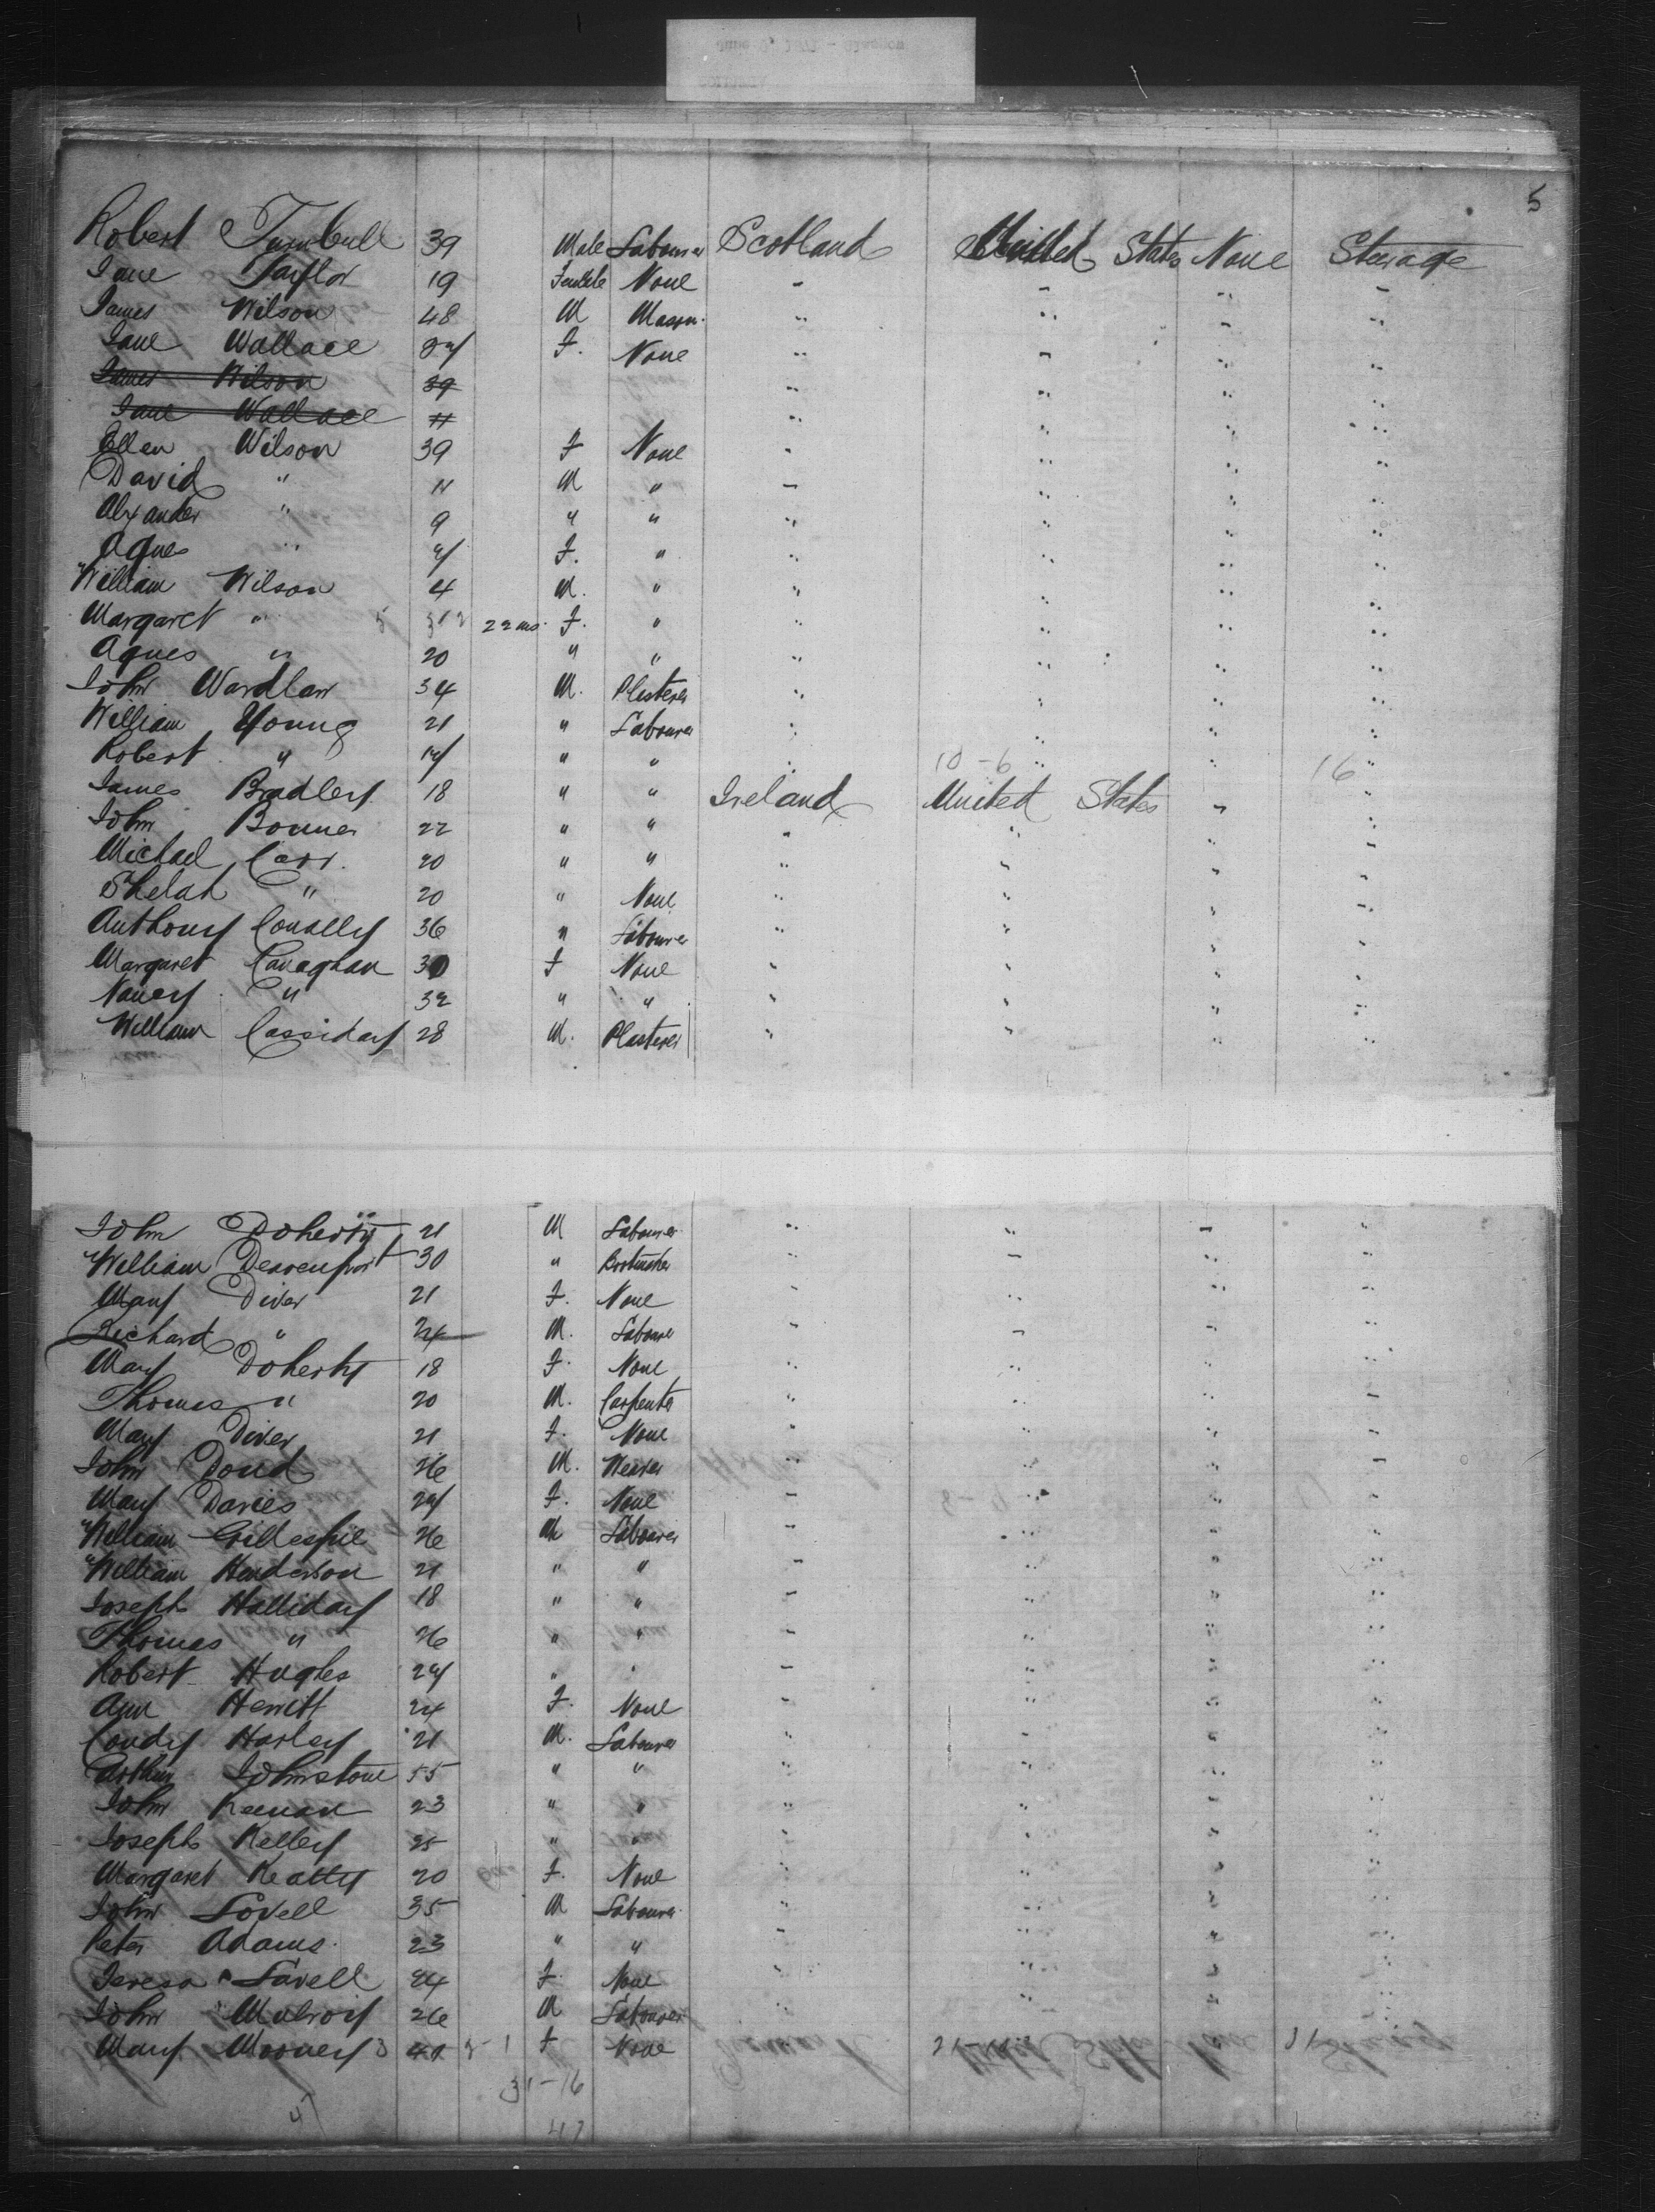 5
Robert Turnbull 39 Male Labourer Scotland United States None Steerage
Jane Taylor 19 Female None " " " "
James Wilson 48 M Mason " " " "
Jane Wallace F. None " " " "
James Wilson 39 " " " "
Jane Wallace 11 " " " "
Ellen Wilson 39 F None " " " "
David " 11 M " " " " "
Alexander " 9 " " " " " "
Agnes " 7 F. " " " " "
William Wilson 4 M. " " " " "
Margaret " 22 ms. F. " " " " "
Agnes " 20 " " " " " "
John Wardlaw 34 M. Plasterer " " " "
William Young 21 " Labourer " " " "
Robert " 17 " " " 10-6 " " 16 "
James Bradley 18 " " Ireland United States " "
John Bonner 22 " " " " " "
Michael Carr. 20 " " " " " "
Shelah " 20 " None " " " "
Anthony Conally 36 " Labourer " " " "
Margaret Canaghan 30 F None " " " "
Nancy " 32 " " " " " "
William Cassiday 28 M. Plasterer " " " "
John Doherty 21 M Labourer " " " "
William Deavenport 30 " Bootmaker " " " "
Mary Diver 21 F. None " " " "
Richard " 24 M. Labourer " " " "
Mary Doherty 18 F. None " " " "
Thomas " 20 M. Carpenter " " " "
Mary Diver 21 F. None " " " "
John Doud 26 M. Weaver " " " "
Mary Davies 27 F. None " " " "
William Gillespie 26 M Labourer " " " "
William Henderson 21 " " " " " "
Joseph Halliday 18 " " " " " "
Thomas " 26 " " " " " "
Robert Hughes 27 " " " " " "
Ann Hewitt 24 F. None " " " "
Condy Harley 21 M. Labourer " " " "
Arthur Johnstone 55 " " " " " "
John Keenan 23 " " " " " "
Joseph Kelley 25 " " " " " "
Margaret Keatty 20 F. None " " " "
John Lovell 35 M Labourer " " " "
Peter Adams. 23 " " " " " "
Teresa Lavell 24 F. None " " " "
John Mulroy 26 M Labourer " " " "
Mary Mooney F None
31-16
47